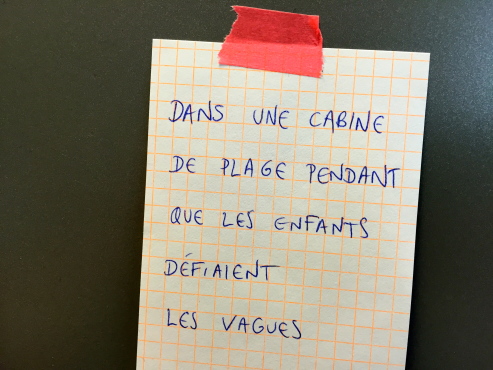 DANS UNE CABINE
DE PLAGE PENDANT
QUE LES ENFANTS
DÉFIAIENT
LES VAGUES